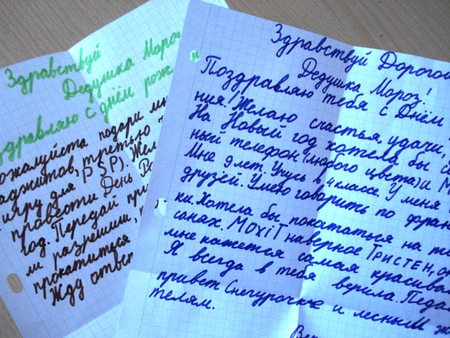 Здравствуй
Дедушка Мороз
здравляю с Днём рож
ожалуйста подари мн
аджитов, третью
игру для PSP). Жела
провести День
год. Передай при
м разрешиш,
прокатиться
Жду ответ
Здравствуй Дорогой
Дедушка Мороз!
Поздравляю тебя с Днём
ния! Желаю счастья, удачи,
На Новый год хотела бы со
ный телефон (любого цвета) и
Мне 9 лет. Учусь в 4 классе. У меня
друзей. Умею говорить по фран
ки. Хотела бы покататься на тв
санах. MOXIT наверное Тристен,
мне кажется самая красивая
Я всегда в тебя верила. Педа
привет Снегурочке и лесным ж
телям.